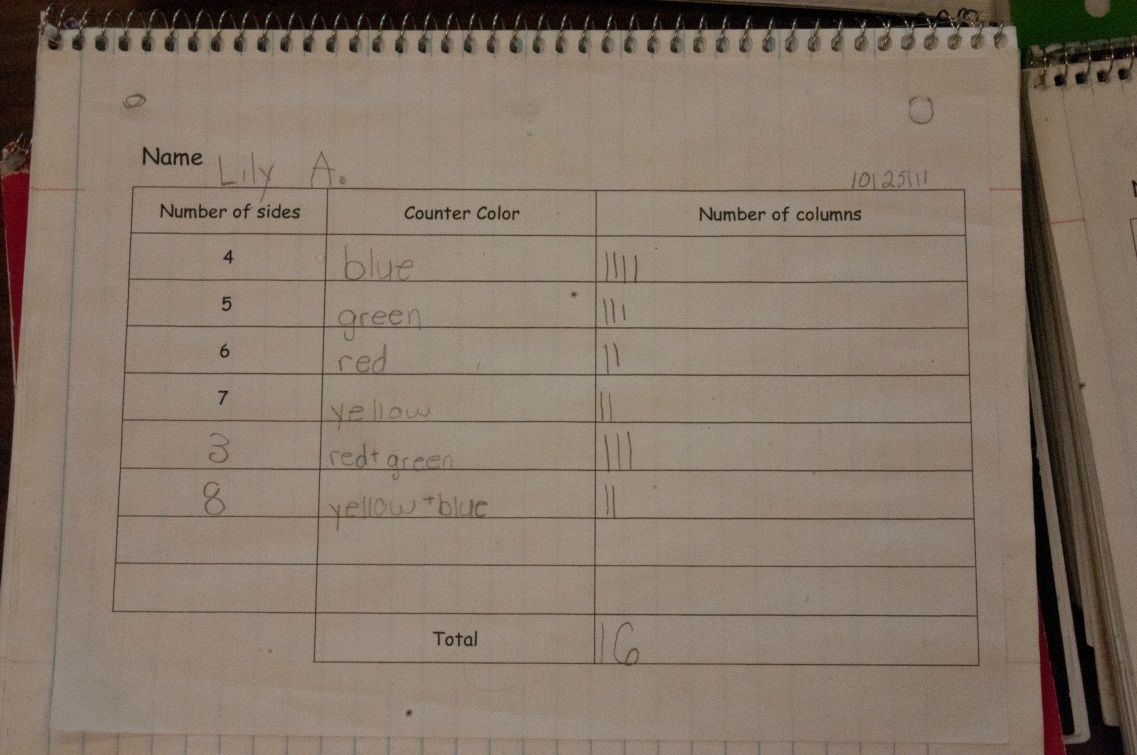 Name Lily A.
10/25/11
Number of sides Counter Color Number of columns
4 blue ||||
5 green |||
6 red ||
7 yellow ||
3 red+green |||
8 yellow+blue ||
Total 16